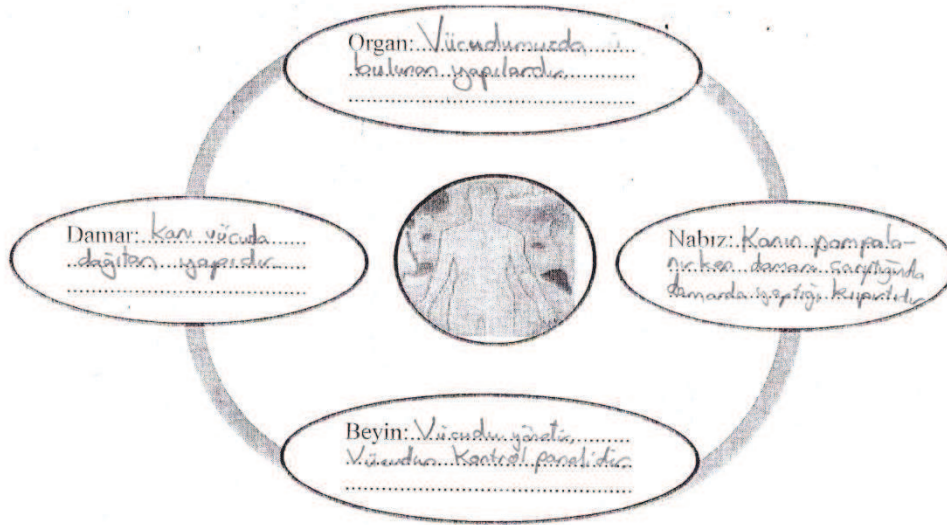 Organ: Vücudumuzda
bulunan yapılardır.
Damar: Kanı vücuda
dağıtan yapıdır.
Nabız: Kanın pompala-
nırken damara çarptığında
damarda yaptığı kıpırtıdır
Beyin: Vücudu yönetir.
Vücudun Kontrol panelidir.